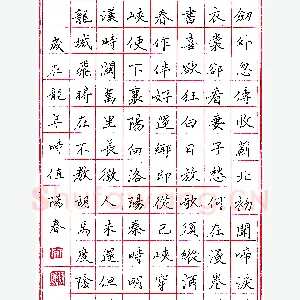 劍外忽傳收薊北初聞啼淚
衣裳却看妻子愁何在漫卷
書喜欲狂白日放歌須縱酒
春作伴好還鄉即從巴峽穿
峽便下襄陽向洛陽秦時明
漢時關萬里長征人未還但
龍城飛將在不教胡馬度陰
歲在龍年時值陽春